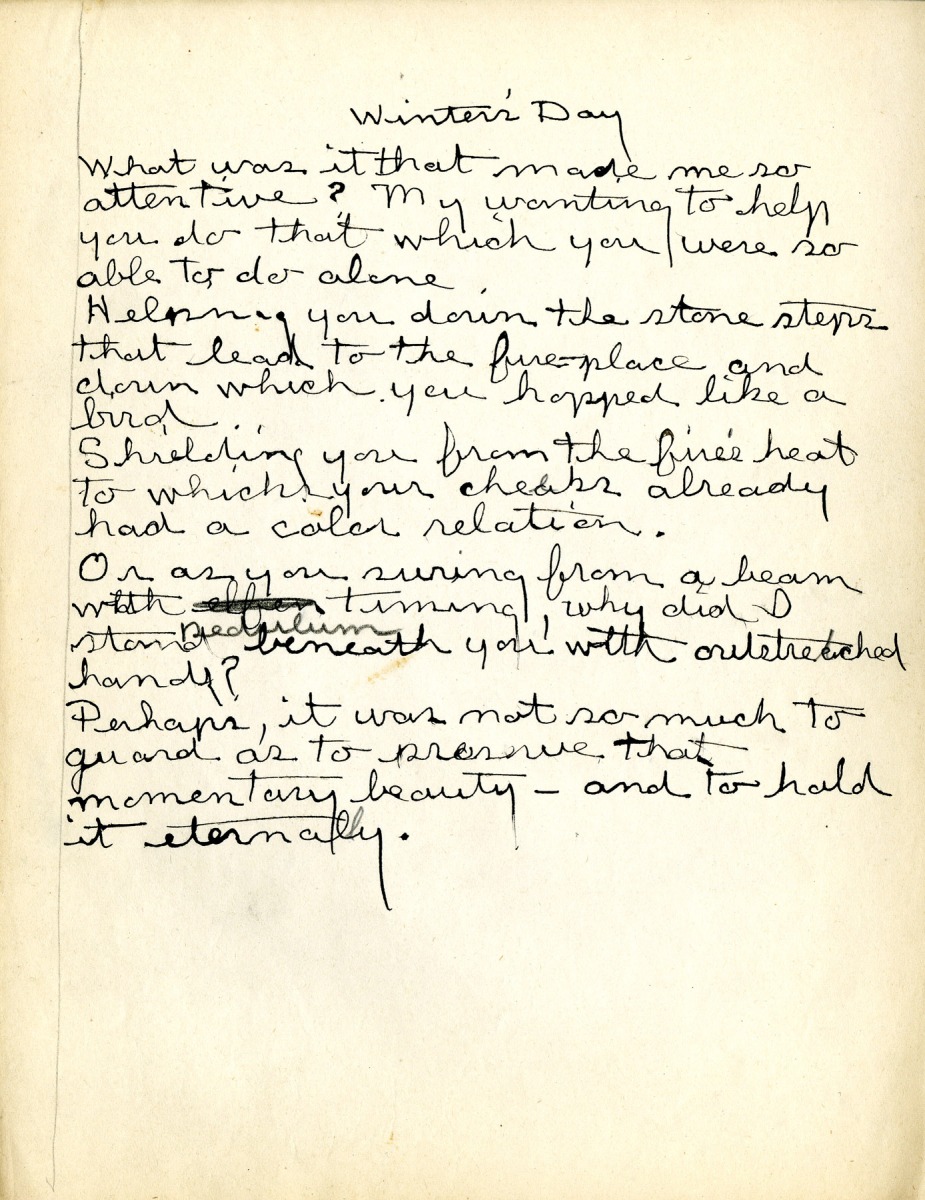 Winter's Day
What was it that made me so
attentive? My wanting to help
you do that which you were so
able to do alone
Helping you down the stone steps
that lead to the fire-place and
down which you hopped like a
bird.
Shielding you from the fire's heat
to which your cheeks already
had a color relation.
Or as you swing from a beam
with timing, why did I
pedulum
stand beneath you with outstretched
hands?
Perhaps, it was not so much to
guard as to preserve that
momentary beauty – and to hold
it eternally.